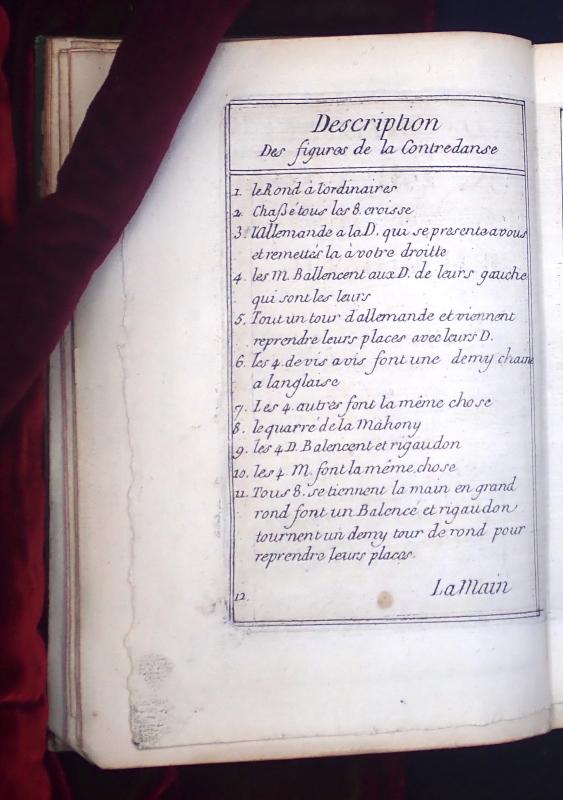 Description
Des figures de la Contredanse
1. le Rond à l'ordinaires
2. Chaßé tous les 8. croisse
3. l'Allemande a la D. qui se presente a vous
et remettés la à votre droitte
4. les M. Ballencent aux D. de leurs gauche
qui sont les leurs
5. Tout un tour d'allemande et viennent
reprendre leurs places avec leurs D.
6. Les 4. de vis a vis font une demy chaine
a langlaise
7. Les 4. autres font la même chose
8. le quarré de la Mahony
9. les 4 D. Balencent et rigaudon
10. les 4. M. font la même chose
11. Tous 8. se tiennent la main en grand
rond font un Balencé et rigaudon
tournent un demy tour de rond pour
reprendre leurs places.
12. La Main